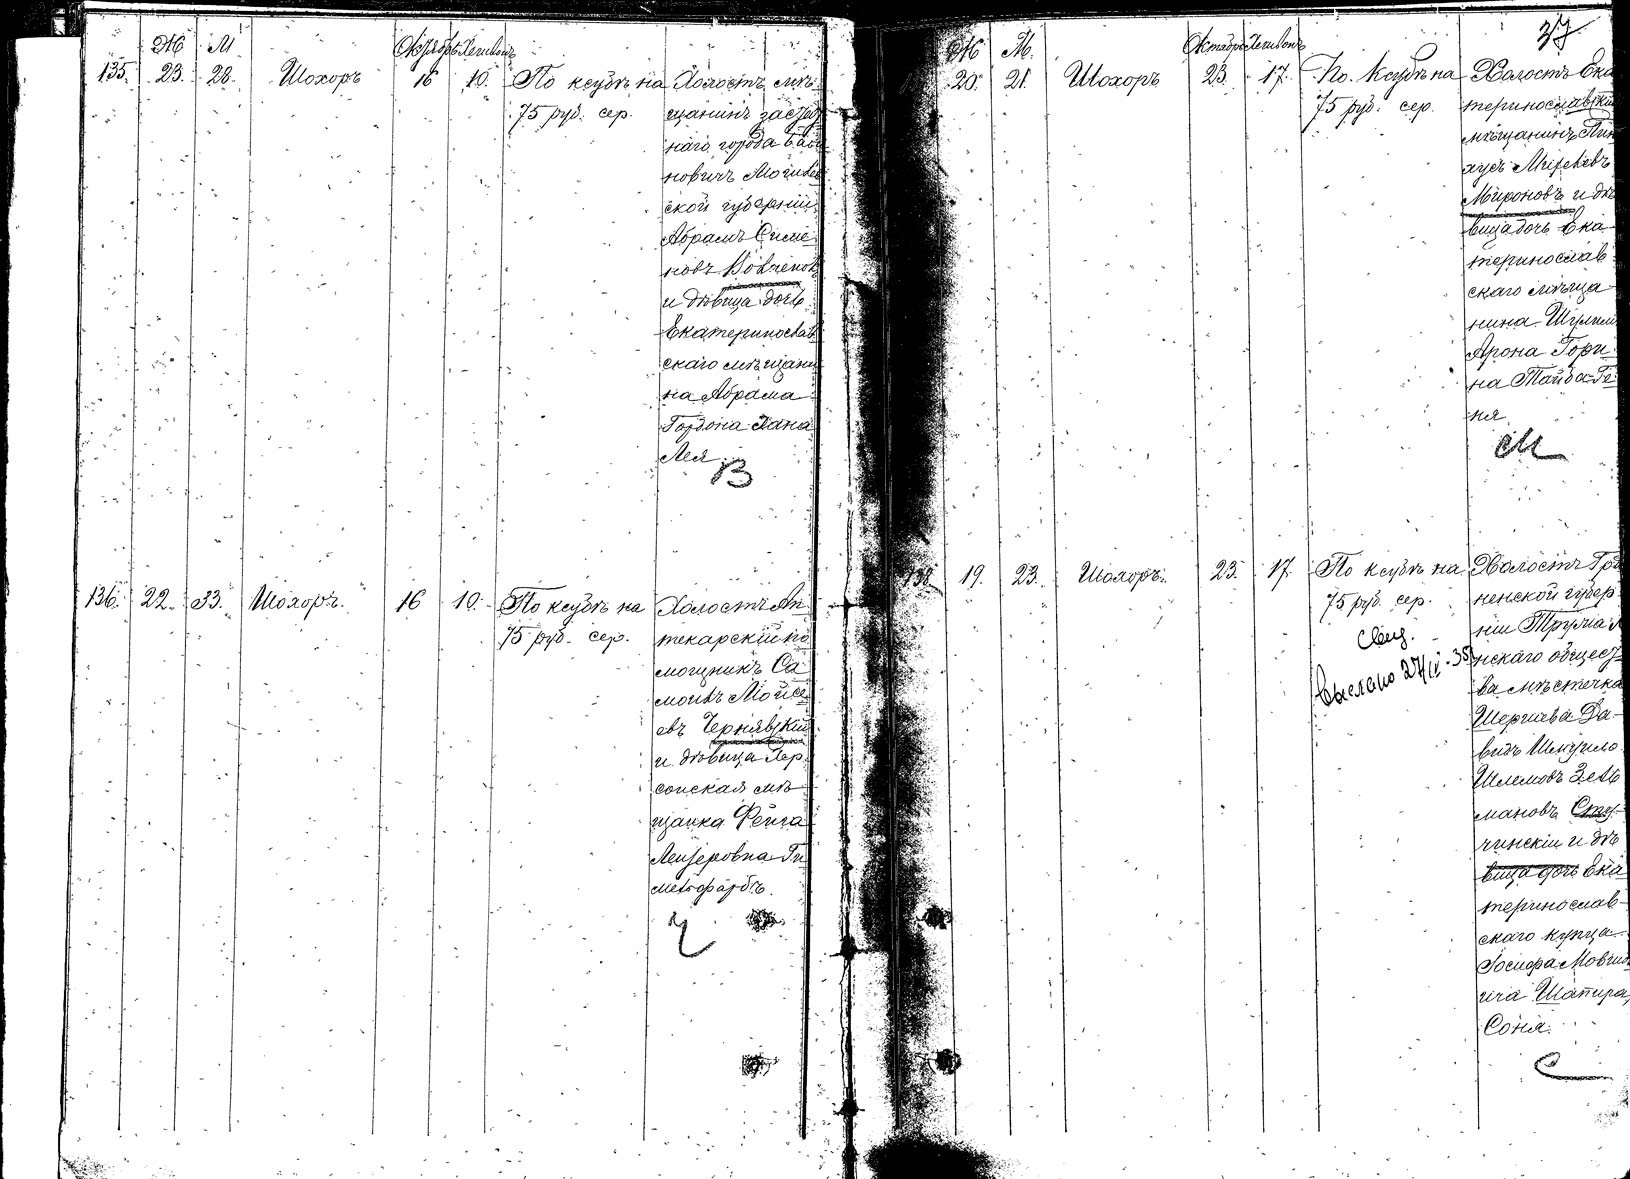 Ж М Октябрь Хешвонъ
135. 23. 28. Шохоръ 16 10. По ксубѣ на
75 руб. сер.
Холостъ мѣ-
щанинъ заштат
наго города Баби
новичъ Могилев
ской губерніи
Абрамъ Симо
новъ Вовченокъ
и дѣвица дочь
Екатеринослав
скаго мѣщани
на Абрама
Гордона Хана
Лея
В
136. 22. 33. Шохоръ. 16 10. По ксубѣ на
75 руб. сер.
Холостъ Ап
текарскій по
мощникъ Са
моилъ Мойсе
евъ Чернявскій
и дѣвица Хер
сонская мѣ
щанка Фейга
Лейзеровна Ги
мельфарбъ.
Ч
37
Ж М. Октябрь Хешвонъ
20. 21. Шохоръ 23. 17. По Ксубѣ на
75 руб. сер.
Холостъ Ека
теринославскій
мѣщанинъ Пин
хусъ
Мироновъ и дѣ
вица дочь Ека
теринослав
скаго мѣща
нина Шулим
Арона Гори
на Тайба-Ге
ня
М
138. 19. 23. Шохоръ. 23. 17. По ксубѣ на
75 руб. сер.
Выслано 27/IV-35
Холостъ Гро
ненской губер
ніи
нскаго общест
ва мѣстечка
Да-
видъ
Шлемовъ Зель
мановъ Сту-
чинскій и дѣ
вица дочь Ека
теринослав-
скаго купца
Іосифа Мовшо
вича Шапира,
Соня.
С